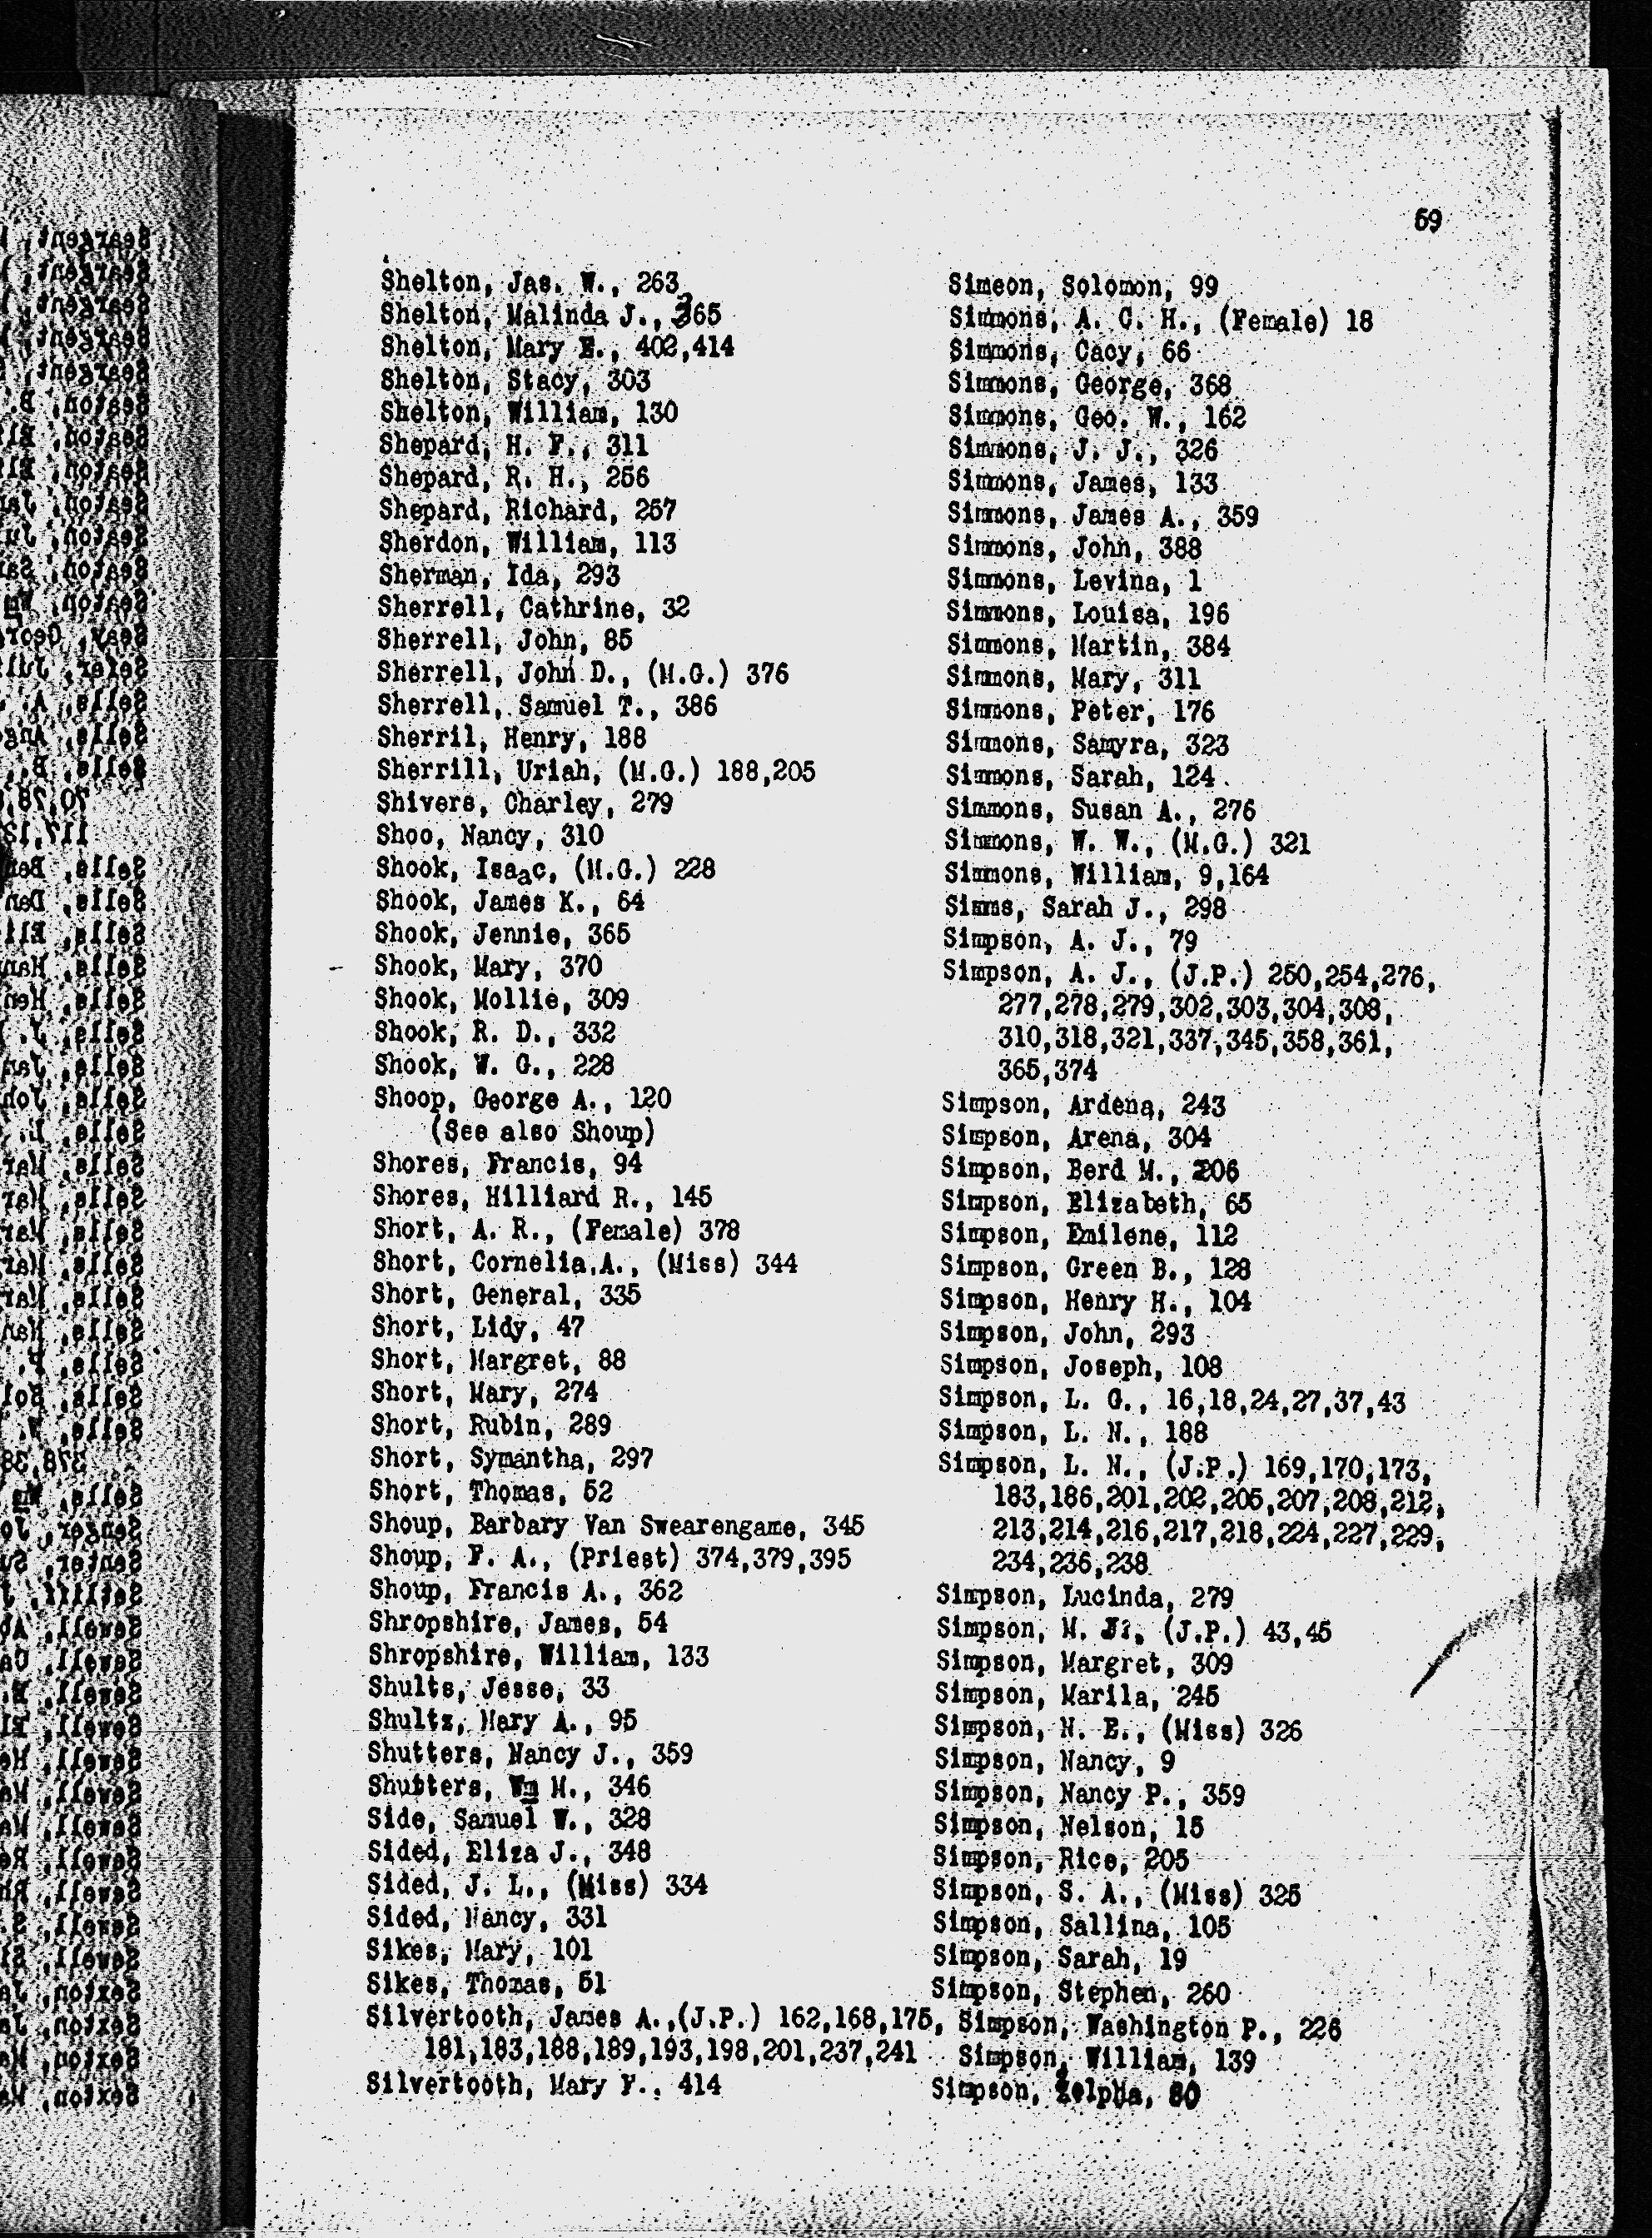 69
Shelton, Jas. W., 263
Shelton, Malinda J., 365
Shelton, Mary E., 402,414
Shelton, Stacy, 303
Shelton, William, 130
Shepard, H. F., 311
Shepard, R. H., 256
Shepard, Richard, 257
Sherdon, William, 113
Sherman, Ida, 293
Sherrell, Cathrine, 32
Sherrell, John, 85
Sherrell, John D., (M.G.) 376
Sherrell, Samuel T., 386
Sherril, Henry, 188
Sherrill, Uriah, (M.G.) 188,205
Shivers, Charley, 279
Shoo, Nancy, 310
Shook, Isaac, (M.G.) 228
Shook, James K., 64
Shook, Jennie, 365
Shook, Mary, 370
Shook, Mollie, 309
Shook, R. D., 332
Shook, W. G., 228
Shoop, George A., 120
(See also Shoup)
Shores, Francis, 94
Shores, Hilliard R., 145
Short, A. R., (Female) 378
Short, Cornelia A., (Miss) 344
Short, General, 335
Short, Lidy, 47
Short, Margret, 88
Short, Mary, 274
Short, Rubin, 289
Short, Symantha, 297
Short, Thomas, 52
Shoup, Barbary Van Swearengame, 345
Shoup, F. A., (Priest) 374,379,395
Shoup, Francis A., 362
Shropshire, James, 54
Shropshire, William, 133
Shults, Jesse, 33
Shultz, Mary A., 95
Shutters, Nancy J., 359
Shutters, Wm M., 346
Side, Samuel W., 328
Sided, Eliza J., 348
Sided, J. L., (Miss) 334
Sided, Nancy, 331
Sikes, Mary, 101
Sikes, Thomas, 51
Silvertooth, James A.,(J.P.) 162,168,175,
181,183,188,189,193,198,201,237,241
Silvertooth, Mary F., 414
Simeon, Solomon, 99
Simmons, A. C. H., (Female) 18
Simmons, Cacy, 66
Simmons, George, 368
Simmons, Geo. W., 162
Simmons, J. J., 326
Simmons, James, 133
Simmons, James A., 359
Simmons, John, 388
Simmons, Levina, 1
Simmons, Louisa, 196
Simmons, Martin, 384
Simmons, Mary, 311
Simmons, Peter, 176
Simmons, Samyra, 323
Simmons, Sarah, 124
Simmons, Susan A., 276
Simmons, W. W., (M.G.) 321
Simmons, William, 9,164
Simms, Sarah J., 298
Simpson, A. J., 79
Simpson, A. J., (J.P.) 250,254,276,
277,278,279,302,303,304,308,
310,318,321,337,345,358,361,
365,374
Simpson, Ardena, 243
Simpson, Arena, 304
Simpson, Berd M., 206
Simpson, Elizabeth, 65
Simpson, Emilene, 112
Simpson, Green B., 128
Simpson, Henry H., 104
Simpson, John, 293
Simpson, Joseph, 108
Simpson, L. G., 16,18,24,27,37,43
Simpson, L. N., 188
Simpson, L. N., (J.P.) 169,170,173,
183,186,201,202,205,207,208,212,
213,214,216,217,218,224,227,229,
234,236,238
Simpson, Lucinda, 279
Simpson, M. (J.P.) 43,45
Simpson, Margret, 309
Simpson, Marila, 245
Simpson, N. E., (Miss) 326
Simpson, Nancy, 9
Simpson, Nancy P., 359
Simpson, Nelson, 15
Simpson, Rice, 205
Simpson, S. A., (Miss) 325
Simpson, Sallina, 105
Simpson, Sarah, 19
Simpson, Stephen, 260
Simpson, Washington P., 226
Simpson, William, 139
Simpson, Zelpha, 80